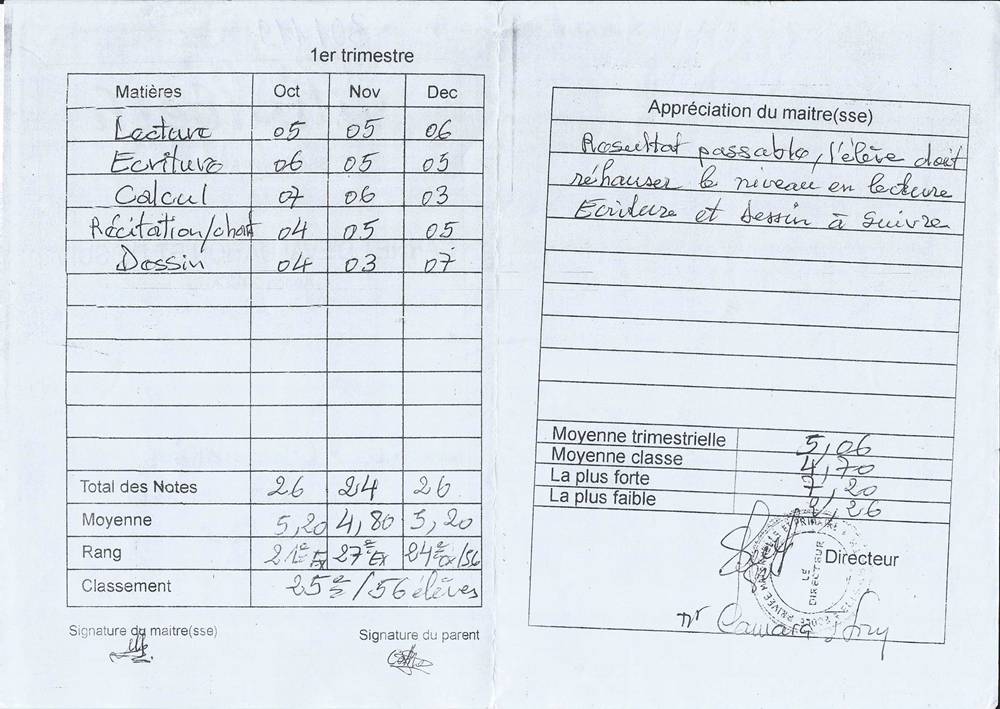 1er trimestre
Matières Oct Nov Dec
Lecture 05 05 06
Ecriture 06 05 05
Calcul 07 06 03
Récitation/chant 04 05 05
Dessin 04 03 07
Total des Notes 26 24 26
Moyenne 5,20 4,80 5,20
Rang 21e Ex 27e Ex 24e ex/56
Classement 25e/56 élèves
Signature du maitre(sse) Signature du parent
Appréciation du maitre(sse)
Resultat passable, l'élève doit
réhausser le niveau en lecture
Ecriture et dessin à suivre
Moyenne trimestrielle 5,06
Moyenne classe 4,70
La plus forte 7,20
La plus faible ,26
Directeur
LE DIRECTEUR
Mr Camara